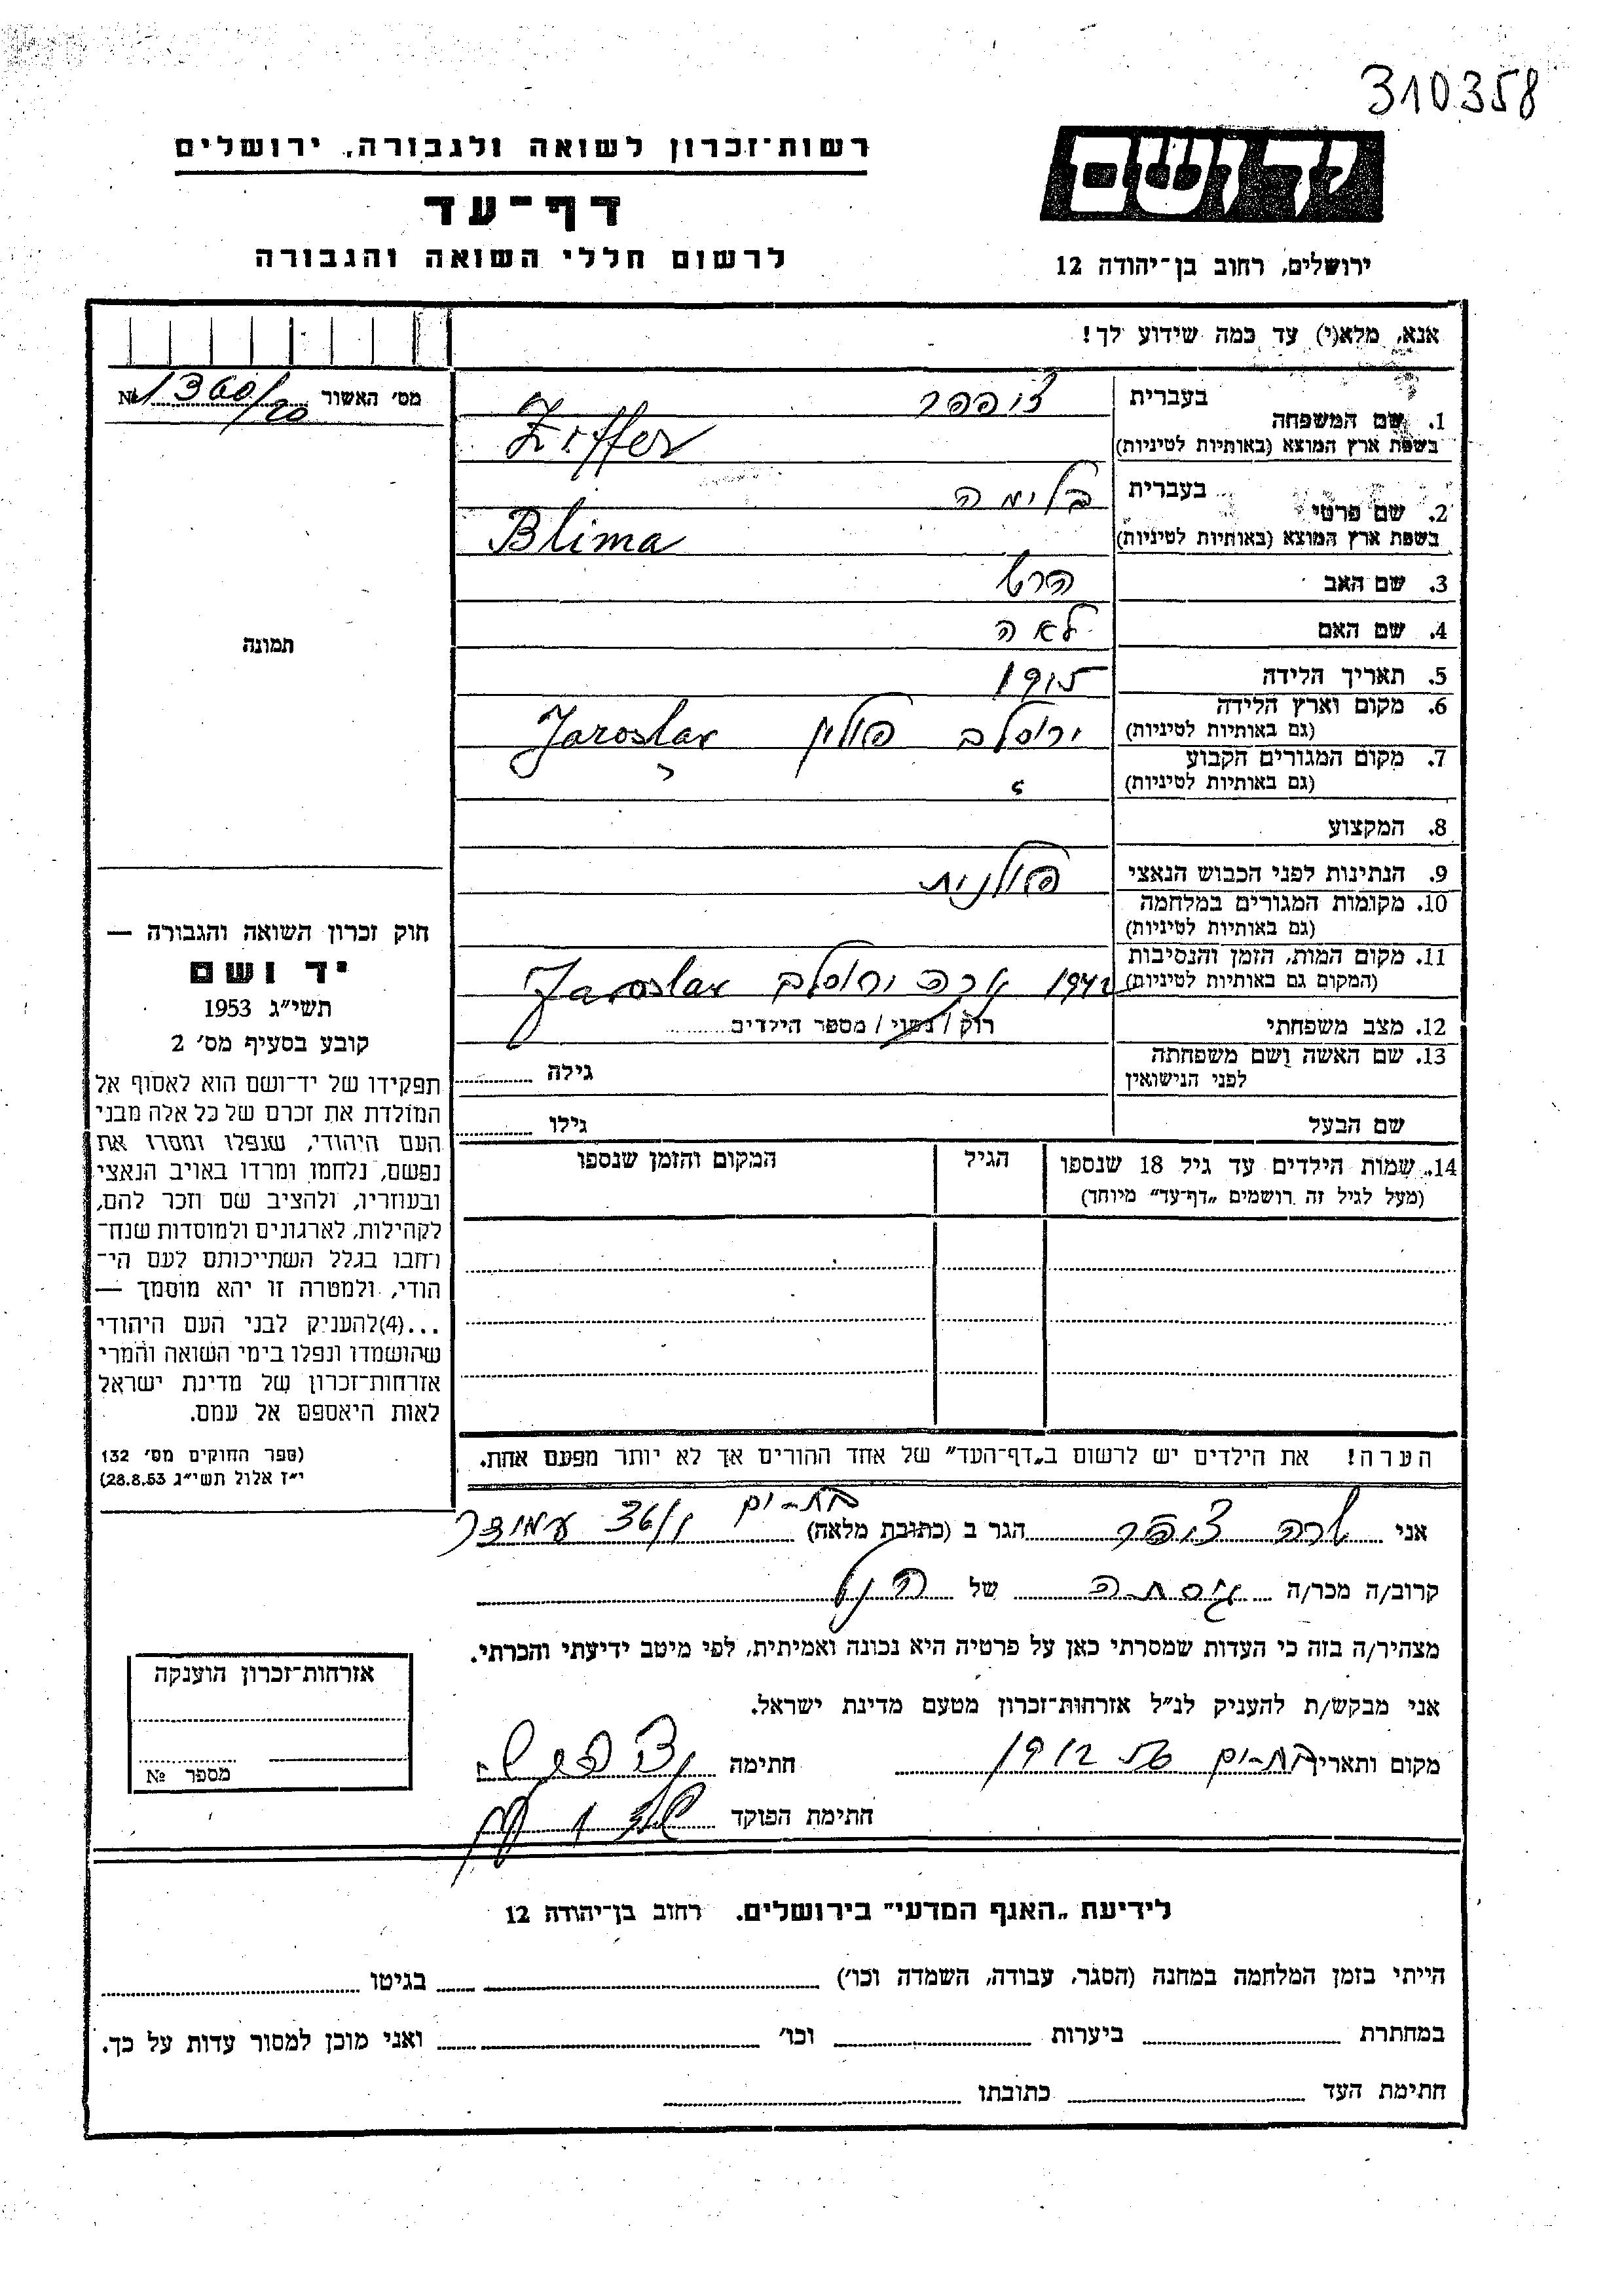 310358
רשות־זכרון לשואה ולגבורה, ירושלים
דף־עד
לרשום חללי השואה והגבורה
יד ושם
ירושלים, רחוב בן־יהודה 12
אנא, מלא(י) עד כמה שידוע לך!
מס׳ האשור 1360/20 №
1. שם המשפחה
בעברית
ציפפר
בשפת ארץ המוצא (באותיות לטיניות)
Ziffer
2. שם פרטי
בעברית
בלימה
בשפת ארץ המוצא (באותיות לטיניות)
Blima
3. שם האב
הרש
4. שם האם
לאה
5. תאריך הלידה
1915
6. מקום וארץ הלידה
(גם באותיות לטיניות)
ירוסלב פולין Jaroslav
7. מקום המגורים הקבוע
(גם באותיות לטיניות)
8. המקצוע
9. הנתינות לפני הכבוש הנאצי
פולנית
10. מקומות המגורים במלחמה
(גם באותיות לטיניות)
11. מקום המות, הזמן והנסיבות
(המקום גם באותיות לטיניות)
1942 ירוסלב Jaroslav
12. מצב משפחתי
רוק / נשוי / מספר הילדים
13. שם האשה ושם משפחתה
לפני הנישואין
גילה
שם הבעל
גילו
14. שמות הילדים עד גיל 18 שנספו
(מעל לגיל זה רושמים „דף־עד״ מיוחד)
הגיל
המקום והזמן שנספו
תמונה
חוק זכרון השואה והגבורה —
יד ושם
תשי״ג 1953
קובע בסעיף מס׳ 2
תפקידו של יד־ושם הוא לאסוף אל
המולדת את זכרם של כל אלה מבני
העם היהודי, שנפלו ומסרו את
נפשם, נלחמו ומרדו באויב הנאצי
ובעוזריו, ולהציב שם וזכר להם,
לקהילות, לארגונים ולמוסדות שנח־
רחבו בגלל השתייכותם לעם הי־
הודי, ולמטרה זו יהא מוסמך —
...(4)להעניק לבני העם היהודי
שהושמדו ונפלו בימי השואה והמרי
אזרחות־זכרון של מדינת ישראל
לאות היאספם אל עמם.
(ספר החוקים מס׳ 132
י״ז אלול תשי״ג 28.8.53)
הערה! את הילדים יש לרשום ב„דף־העד״ של אחד ההורים אך לא יותר מפעם אחת.
בת-ים
אני שרה ציפפר הגר ב (כתובת מלאה) 36/1
קרוב/ה מכר/ה גיסתה של הנ״ל
מצהיר/ה בזה כי העדות שמסרתי כאן על פרטיה היא נכונה ואמיתית, לפי מיטב ידיעתי והכרתי.
אני מבקש/ת להעניק לנ״ל אזרחות־זכרון מטעם מדינת ישראל.
מקום ותאריך בת-ים חתימה
חתימת הפוקד
אזרחות־זכרון הוענקה
מספר №
לידיעת „האגף המדעי״ בירושלים. רחוב בן־יהודה 12
הייתי בזמן המלחמה במחנה (הסגר, עבודה, השמדה וכו׳) בגיטו
במחתרת ביערות וכו׳ ואני מוכן למסור עדות על כך.
חתימת העד כתובתו